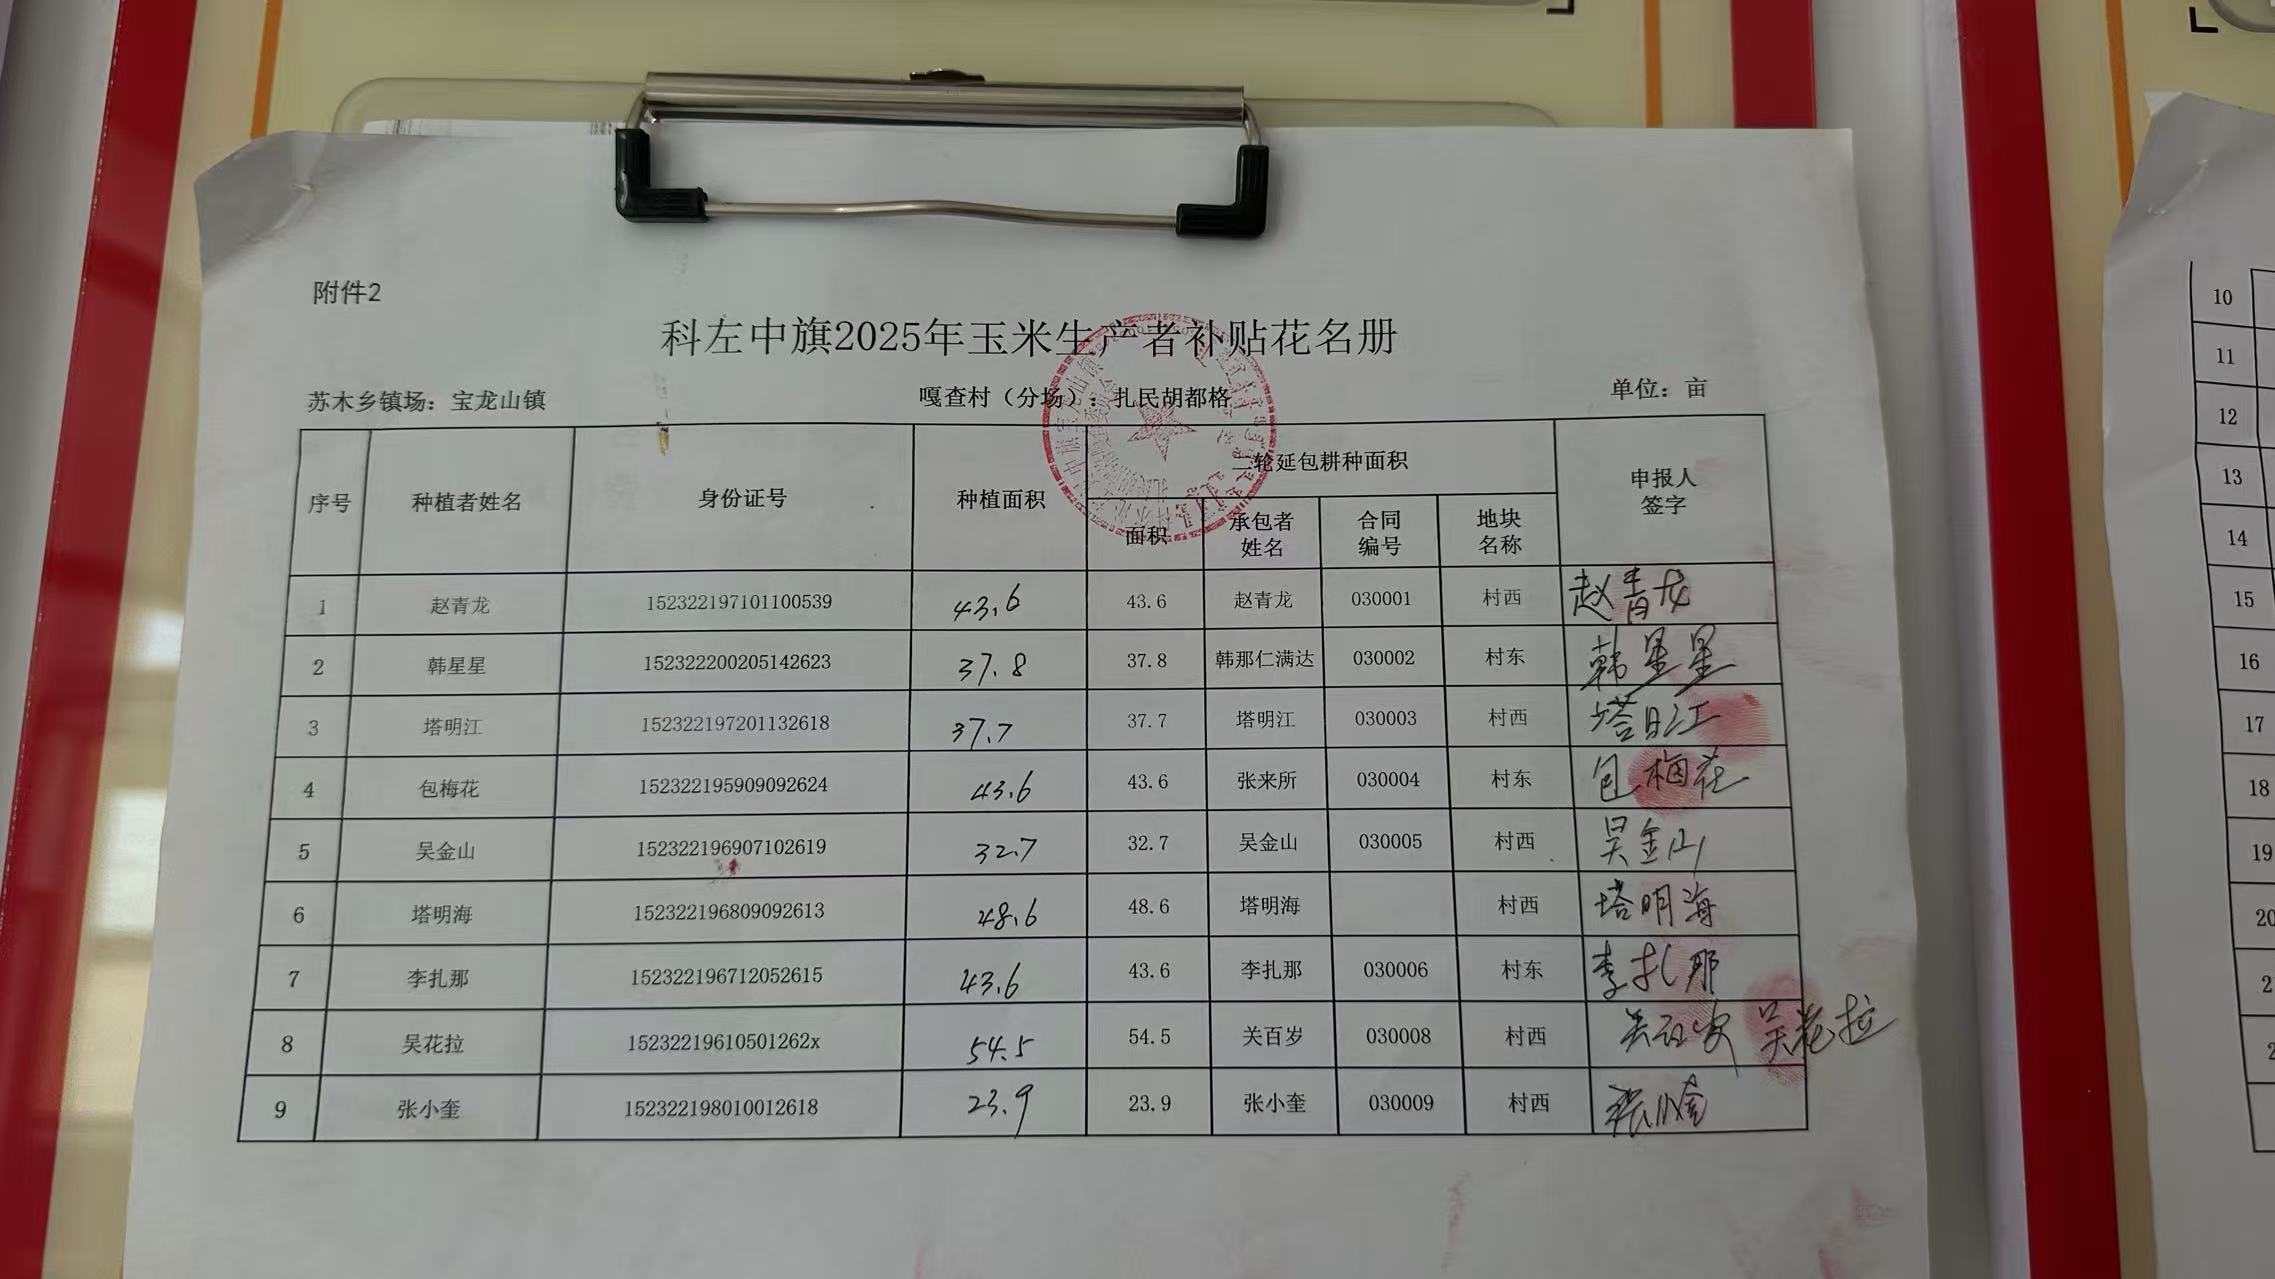 附件2
科左中旗2025年玉米生产者补贴花名册
苏木乡镇场：宝龙山镇 嘎查村（分场）：扎民胡都格 单位：亩
序号 种植者姓名 身份证号 种植面积 二轮延包耕种面积 申报人签字
面积 承包者姓名 合同编号 地块名称
1 赵青龙 152322197101100539 43.6 43.6 赵青龙 030001 村西 赵青龙
2 韩星星 152322200205142623 37.8 37.8 韩那仁满达 030002 村东 韩星星
3 塔明江 152322197201132618 37.7 37.7 塔明江 030003 村西 塔明江
4 包梅花 152322195909092624 43.6 43.6 张来所 030004 村东 包梅花
5 吴金山 152322196907102619 32.7 32.7 吴金山 030005 村西 吴金山
6 塔明海 152322196809092613 48.6 48.6 塔明海 村西 塔明海
7 李扎那 152322196712052615 43.6 43.6 李扎那 030006 村东 李扎那
8 吴花拉 15232219610501262x 54.5 54.5 关百岁 030008 村西 吴花拉
9 张小奎 152322198010012618 23.9 23.9 张小奎 030009 村西 张小奎
10
11
12
13
14
15
16
17
18
19
20